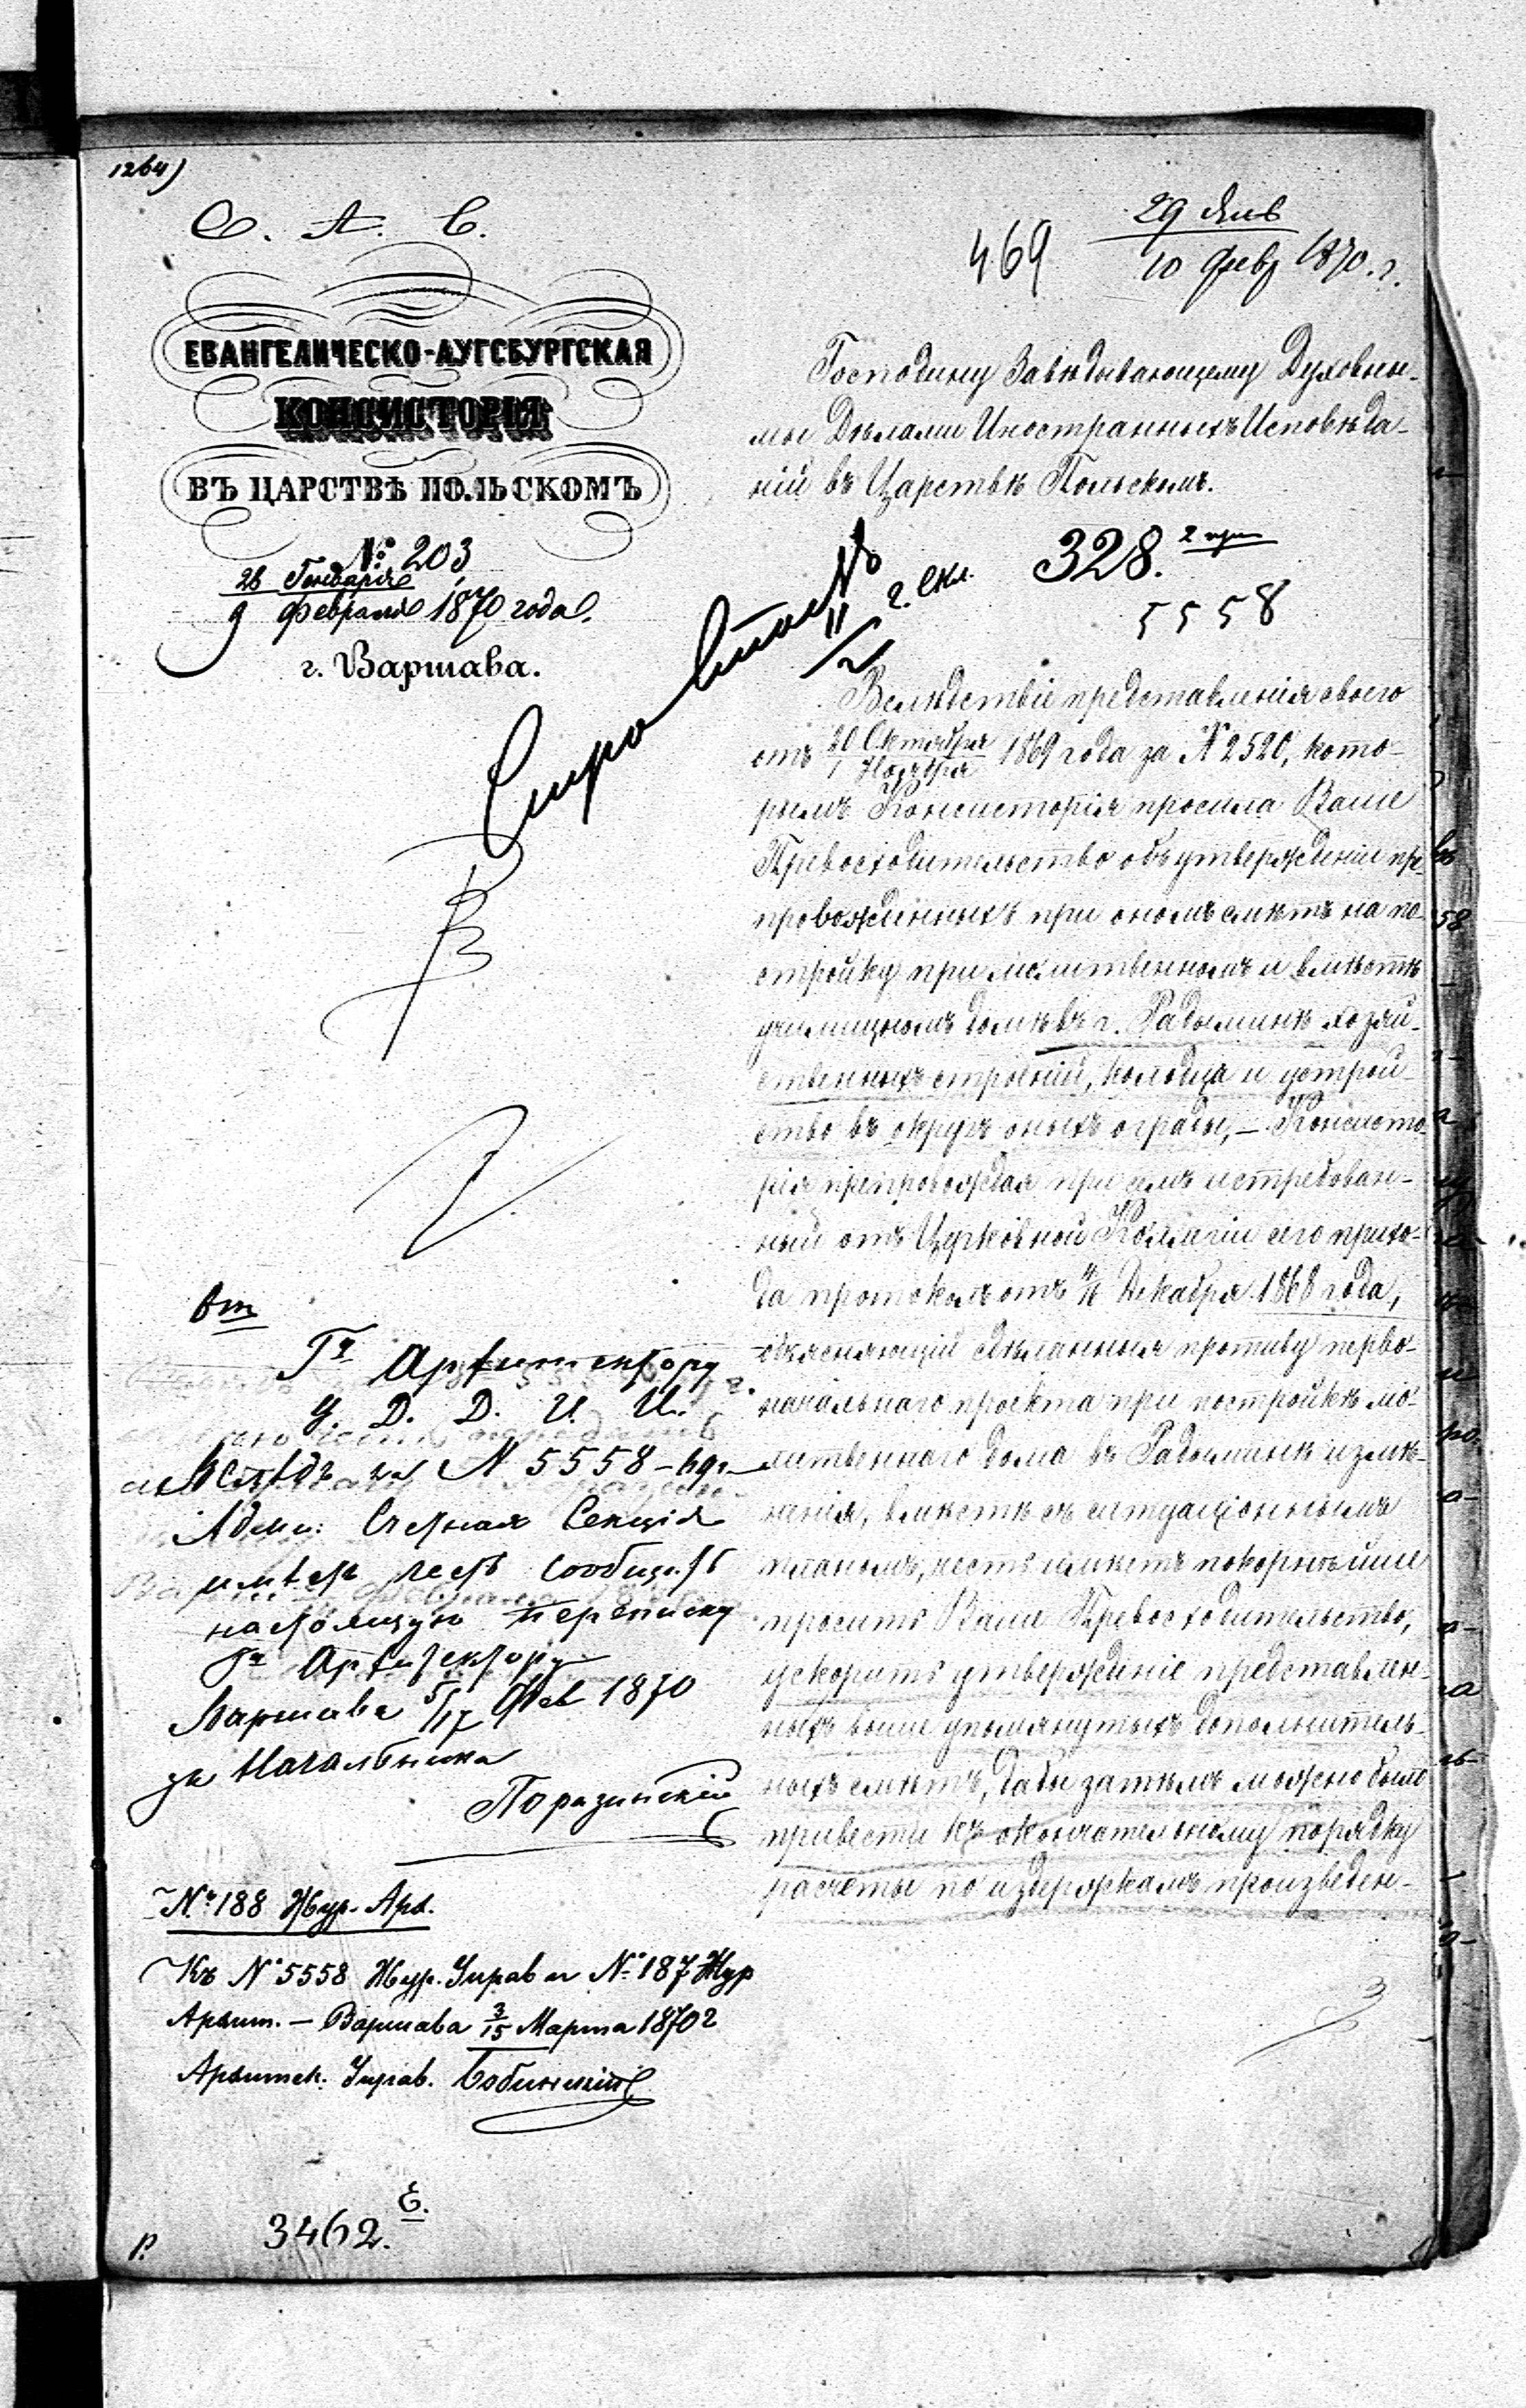 1264)
О. А. С.
ЕВАНГЕЛИЧЕСКО-АУГСБУРГСКАЯ
КОНСИСТОРІЯ
ВЪ ЦАРСТВѢ ПОЛЬСКОМЪ
№ 203
28 Генваря
9 Февраля 1870 года.
г. Варшава.
469
29 Янв
10 Февр 1870. г.
Господину Завѣдывающему Духовны-
мы Дѣлами Иностранныхъ Исповѣда-
ній въ Царствѣ Польскомъ.
328.
5558
11
2
Вслѣдствіе представленія своего
отъ 20 Октября / 1 Ноября 1869 года за № 2520, кото-
рымъ Консисторія просила Ваше
Превосходительство объ утвержденіи пре-
провожденныхъ при ономъ смѣтъ на по-
стройку при молитвенномъ и вмѣстѣ
училищномъ домѣ въ г. Радыминѣ хозяй-
ственныхъ строеній, колодца и устрой-
ство въ округъ оныхъ ограды, – Консисто-
рія препровождая при семъ истребован-
ный отъ Церковной Коллегіи сего прихо-
да протоколъ отъ 4/16 Декабря 1868 года,
объясняющій сдѣланныя противу перво-
начальнаго проекта при постройкѣ мо-
литвеннаго дома въ Радыминѣ измѣ-
ненія, вмѣстѣ съ ситуаціоннымъ
планомъ, честь имѣетъ покорнѣйше
просить Ваше Превосходительство,
ускорить утвержденіе представлен-
ныхъ выше упомянутыхъ дополнитель-
ныхъ смѣтъ, дабы затѣмъ можно было
привести къ окончательному порядку
расчеты по издержкамъ произведен-
Гну Архитектору
У. Д. Д. И. И.
Вслѣдъ за № 5558-69 г.
Адми: Счетная Секція
имѣетъ честь сообщить
настоящую переписку
Гну Архитектору
Варшава 5/17 Фев 1870
за Начальника
Поразинскій
№ 188 Жур. Арх.
Къ № 5558 Жур. Управ и № 187 Жур
Архит. – Варшава 3/15 Марта 1870 г
Архитек. Управ.
3462.
3